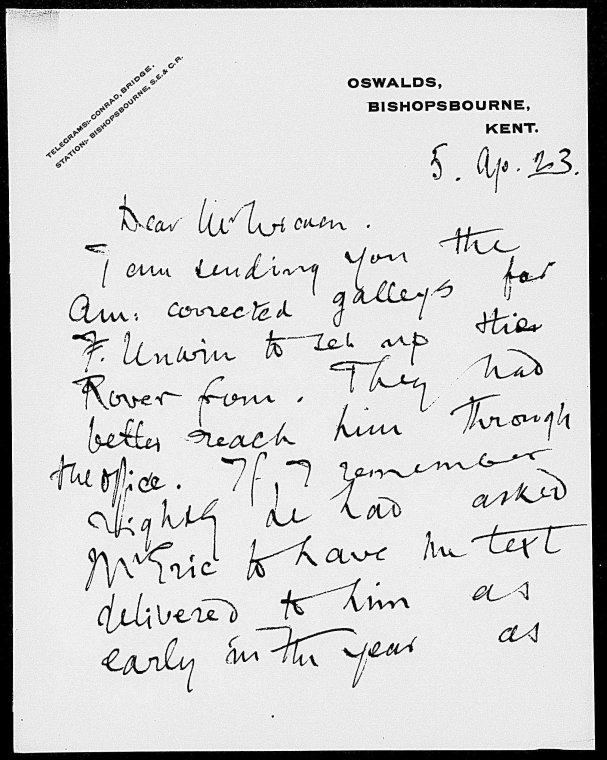 TELEGRAMS:- CONRAD, BRIDGE.
STATION:- BISHOPSBOURNE, S.E. & C.R.
OSWALDS,
BISHOPSBOURNE,
KENT.
5. Ap. 23.
Dear Mr
I am sending you the
Am: corrected galleys for
F. Unwin to set up
Rover from. They had
better reach him through
the office. If I remember
rightly he had asked
Mr Eric to have the text
delivered to him as
early in the year as